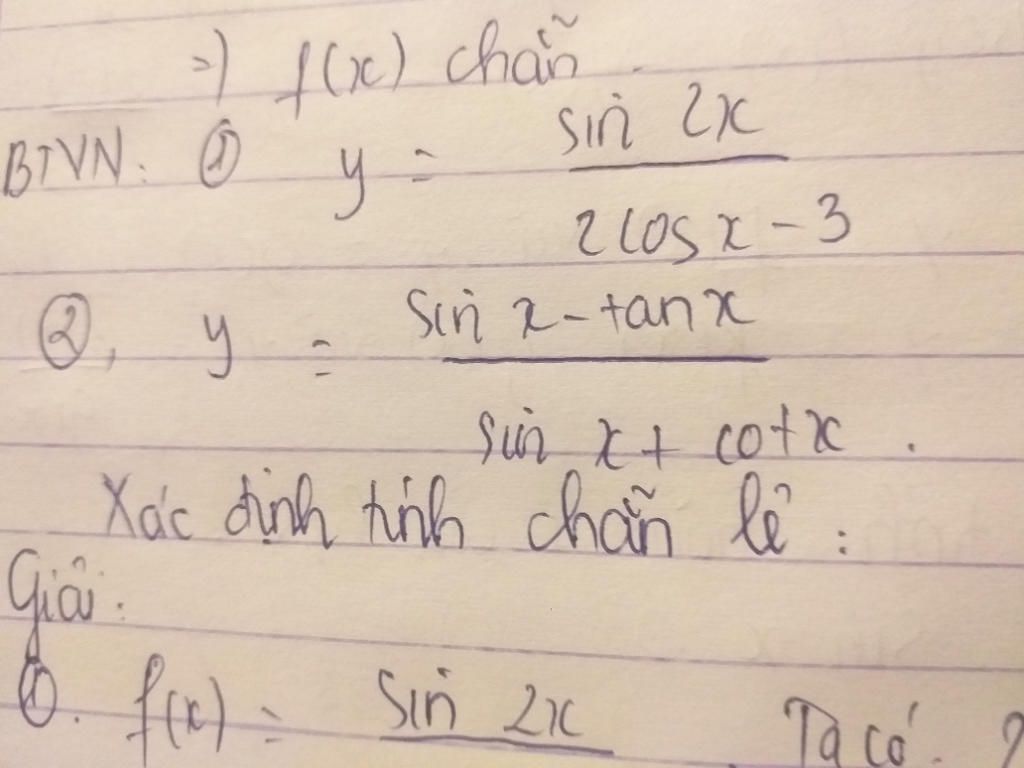 =) f(x) chẵn.
BTVN: ① y = sin 2x / 2cos x - 3
②, y = sin x - tan x / sin x + cot x.
Xác định tính chẵn lẻ :
Giải:
①. f(x) = sin 2x Ta có.